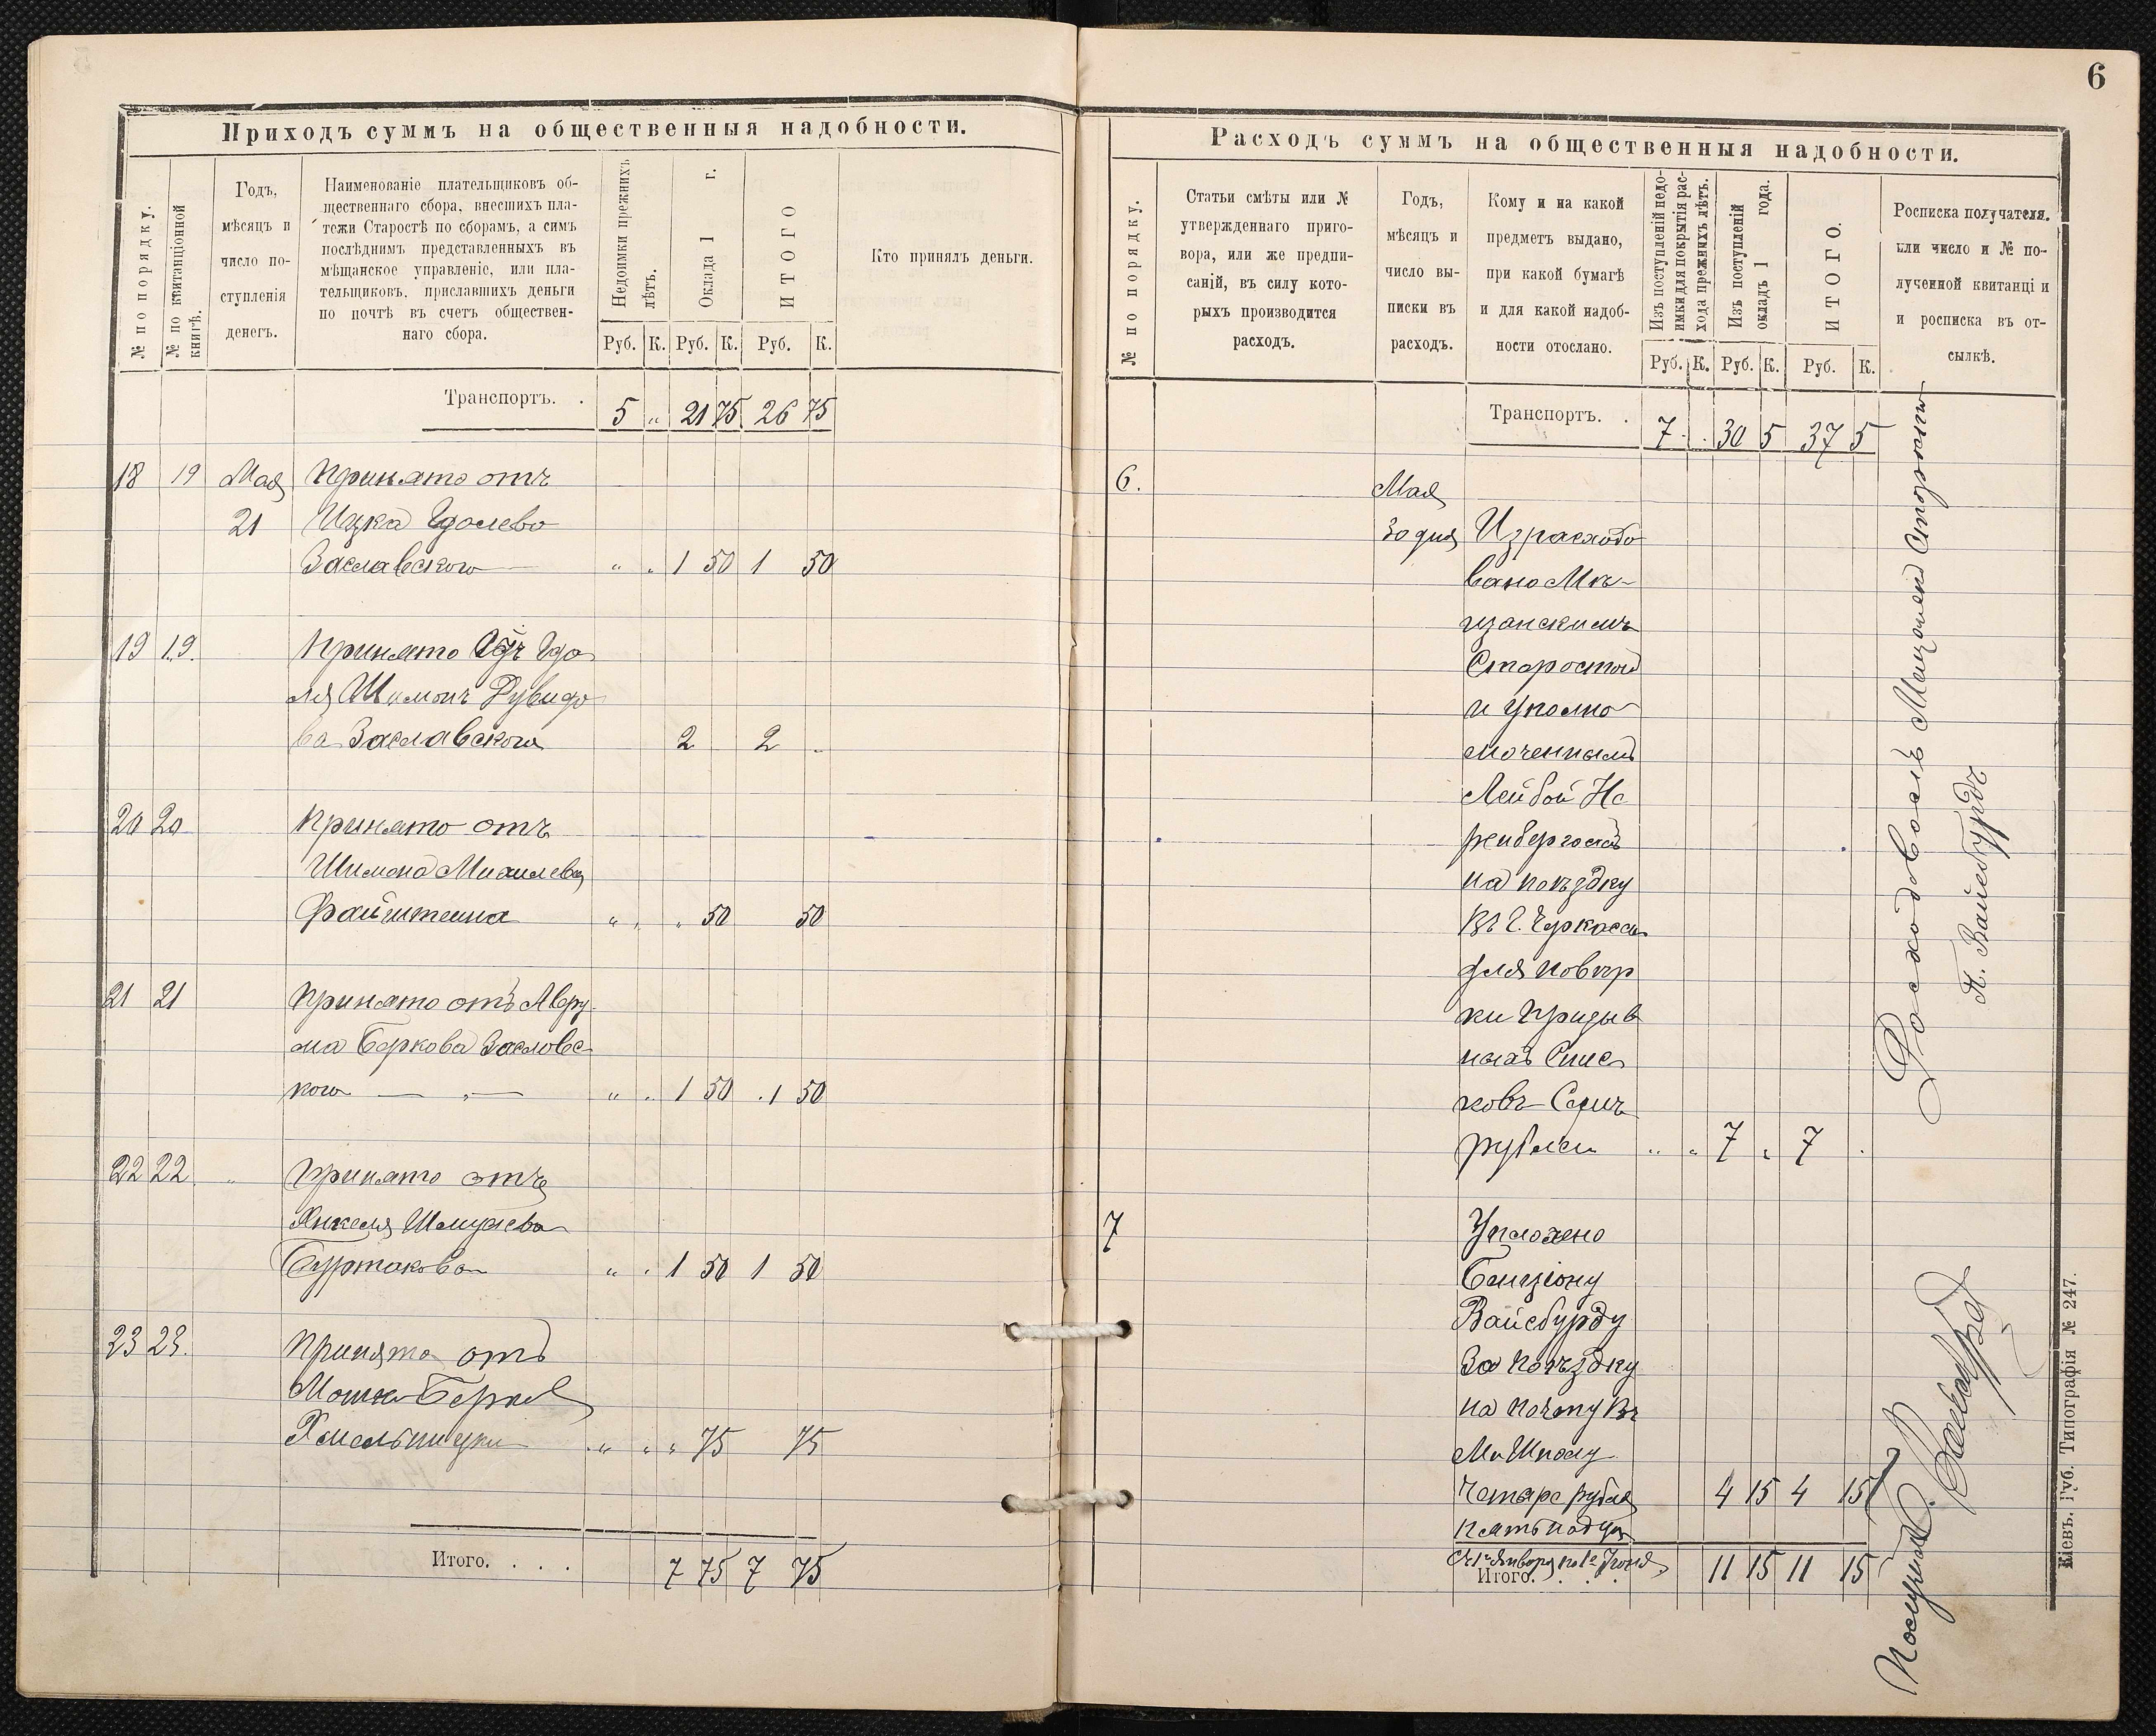 6
Приходъ суммъ на общественныя надобности.
№ по порядку.
№ по квитанціонной книгѣ.
Годъ,
мѣсяцъ и
число по-
ступленія
денегъ.
Наименованіе плательщиковъ об-
щественнаго сбора, внесшихъ пла-
тежи Старостѣ по сборамъ, а симъ
послѣднимъ представленныхъ въ
мѣщанское управленіе, или пла-
тельщиковъ, приславшихъ деньги
по почтѣ въ счетъ обществен-
наго сбора.
Недоимки прежнихъ
лѣтъ.
Оклада 1 г.
ИТОГО
Кто принялъ деньги.
Руб. К. Руб. К. Руб. К.
Транспортъ. . 5 „ 21 75 26 75
18 19 Мая Принято отъ
21 Ицка Гдалево
Заславского „ „ 1 50 1 50
19 19. Принято Гдо
ля Шимонъ Рувидо
ва Заславского 2 2 „
20 20 Принято отъ
Шимона Михилева
Файнштеина „ „ „ 50 50
21 21 Принято отъ Авру
ма Беркова Заславс
кого — „ — „ „ 1 50 1 50
22 22 „ Принято отъ
Янкеля Шмулева
Буртакова „ „ 1 50 1 50
23 23. Принято отъ
Мошка Берков
Хмельницки „ „ „ 75 75
Итого. . . . 7 75 7 75
Расходъ суммъ на общественныя надобности.
№ по порядку.
Статьи смѣты или №
утвержденнаго приго-
вора, или же предпи-
саній, въ силу кото-
рыхъ производится
расходъ.
Годъ,
мѣсяцъ и
число вы-
писки въ
расходъ.
Кому и на какой
предметъ выдано,
при какой бумагѣ
и для какой надоб-
ности отослано.
Изъ поступленій недо-
имки для покрытія рас-
хода прежнихъ лѣтъ.
Изъ поступленій
окладъ 1 года.
ИТОГО.
Росписка получателя.
или число и № по-
лученной квитанціи
и росписка въ от-
сылкѣ.
Руб. К. Руб. К. Руб. К.
Транспортъ. . 7 . . 30 5 37 5
6. Мая
30 дня Израсходо
вано Мѣ-
щанскимъ
Старостой
и Уполно
моченнымъ
Лейбой
на поѣздку
Въ г. Черкассы
для повѣр
ки Призыв
ныхъ Спис
ковъ Семъ
рублей „ „ 7 „ 7 .
7 Уплочено
Бенціону
Вайсбурду
За поѣздку
на почту Въ
М. Шполу
Четыре рубля 4 15 4 15
Пятьнадца
Съ 1го Января по 1е Июня
Итого. . . . 11 15 11 15
Росходовалъ Мещанский Староста
П. Вайсбурдъ
Получилъ Б. Вайсбурд
Кіевъ. Губ. Типографія № 247.